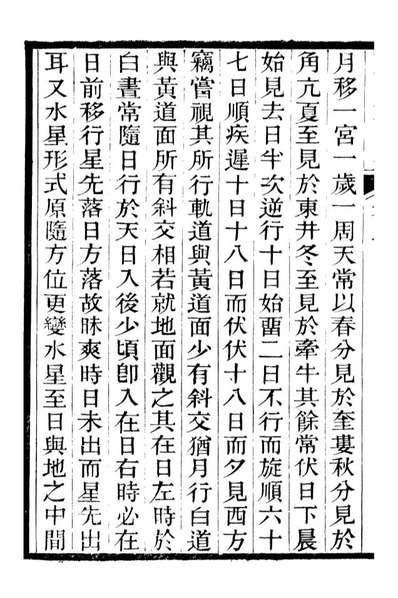 月移一宮一歲一周天常以春分見於奎婁秋分見於
角亢夏至見於東井冬至見於牽牛其餘常伏日下晨
始見去日半次逆行十日始畱二日不行而旋順六十
七日順疾遲十日十八日而伏伏十八日而夕見西方
竊嘗視其所行軌道與黃道面少有斜交猶月行白道
與黃道面所有斜交相若就地面觀之其在日左時於
白晝常隨日行於天日入後少頃卽入在日右時必在
日前移行星先落日方落故昧爽時日未出而星先出
耳又水星形式原隨方位更變水星至日與地之中間